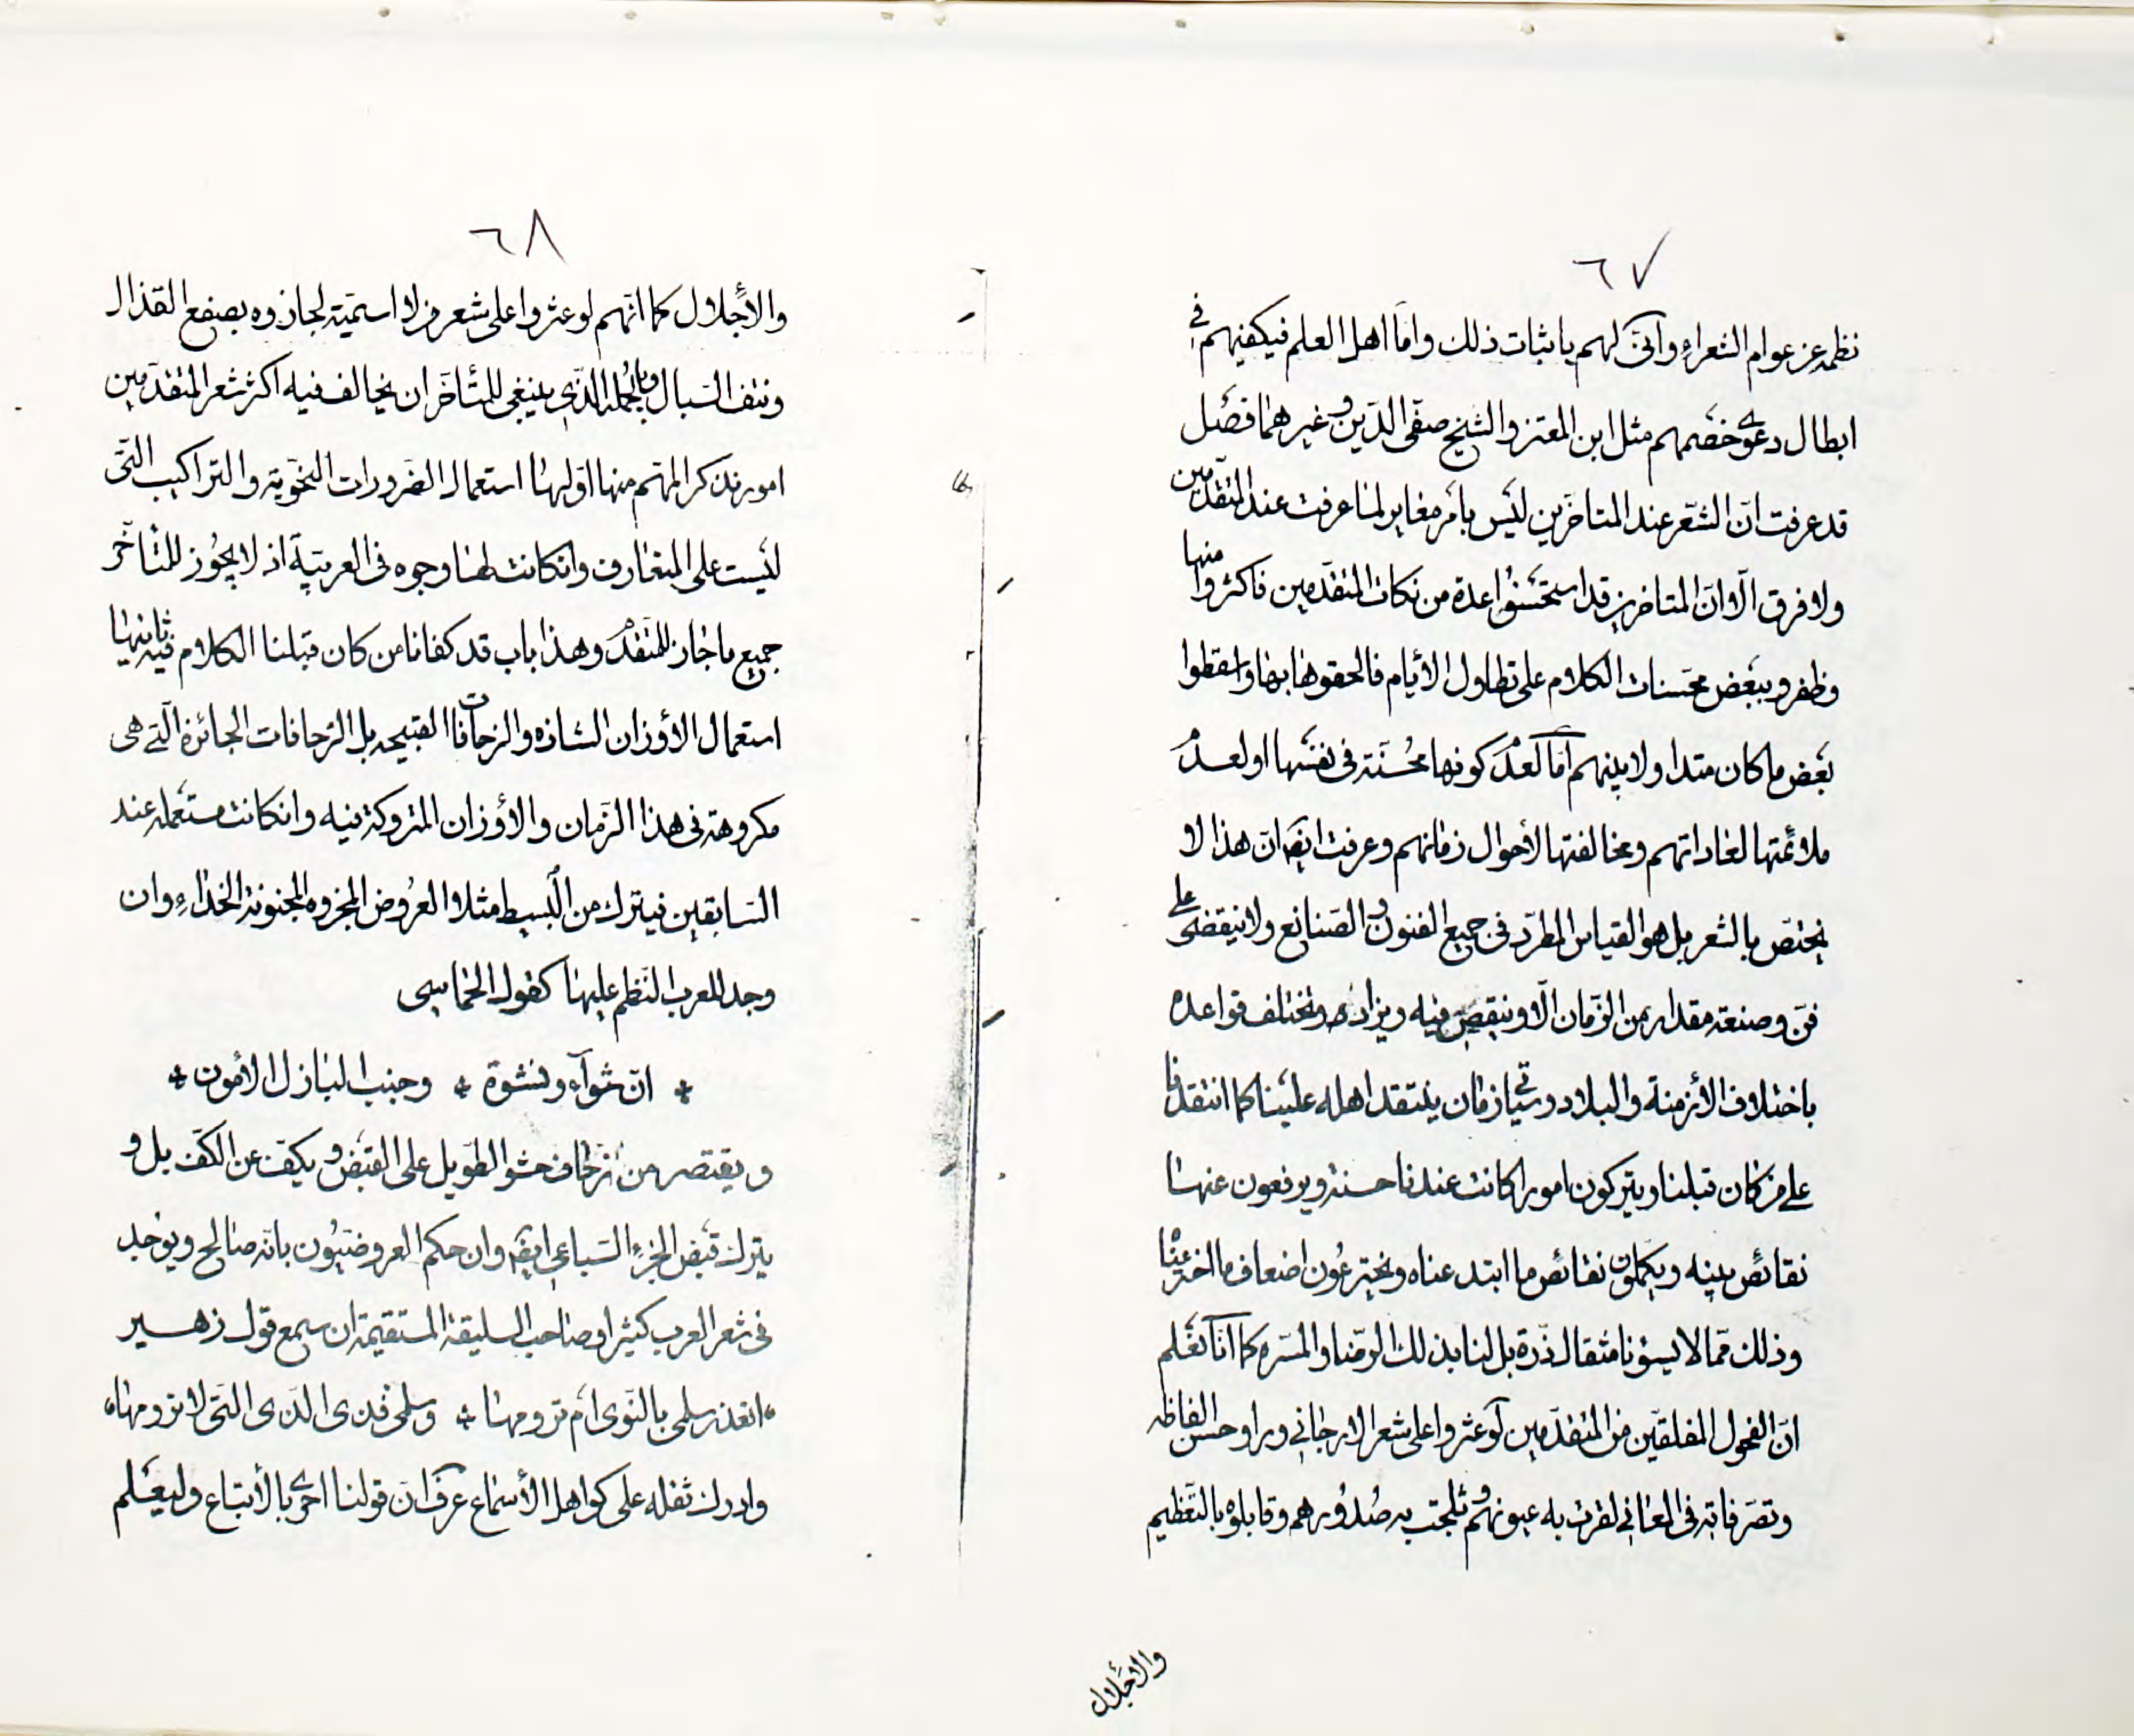 ٦٧
نظمه عن عوام الشعراء وانّى لهم باثبات ذلك وامّا اهل العلم فيكفيهم في
ابطال دعوى خصمهم مثل ابن المعتز والشيخ صفىّ الدّين وغيرهما فصل
قد عرفت انّ الشّعر عند المتاخّرين ليس بامر مغاير لما عرفت عند المتقدّمين
ولا فرق الّا انّ المتاخرين قد استحسنوا عدة من نكات المتقدّمين فاكثروا منها
وظفروا ببعض محسنات الكلام على تطاول الأيّام فالحقوها بها واسقطوا
بعض ما كان متداولا بينهم امّا لعدم كونها محسّنة في نفسها او لعدم
ملائمتها لعاداتهم ومخالفتها لأحوال زمانهم وعرفت ايضا انّ هذا لا
يختصّ بالشعر بل هو القياس المطرّد في جميع الفنون والصنائع ولا ينقضى على
فنّ وصنعة مقدار من الزّمان الّا وينقص فيه ويزاد وتختلف قواعده
باختلاف الأزمنة والبلاد وسيأتي زمان ينتقد اهله علينا كما انتقدنا
على من كان قبلنا ويتركون امورا كانت عندنا حسنة ويرفعون عنها
نقائص بينه ويكملون نقائص ما ابتدعناه ويخترعون اضعاف ما اخترعنا
وذلك ممّا لا يسؤنا مثقال ذرّة بل لنا بذلك الرّضا والمسّره كما انّا نعلم
انّ الفحول المفلقين من المتقدّمين لو عثروا على شعر الارجاني وراوا حسن الفاظه
وتصرّفاته في المعاني لقرّت به عيونهم وثلجت به صدورهم وقابلوه بالتّعظيم
والأجلال
٦٨
والأجلال كما انّهم لو عثروا على شعر من لا اسمّيه لجازوه بصفع القذال
ونتف السبال وبالجملة الّذي ينبغي للمتأخّر ان يخالف فيه اكثر شعر المتقدّمين
امور نذكر المهّم منها اوّلها استعمال الضّرورات النّحويّة والتراكيب الّتى
ليست على المتعارف وانكانت لها وجوه في العربيّة اذ لا يجوز للمتأخّر
جميع ما جاز للمتقدّم وهذا باب قد كفانا من كان قبلنا الكلام فيه ثانيها
استعمال الأوزان الشاذه والزحافات القبيحه بل الزّحافات الجائزة الّتي هي
مكروهة في هذا الزّمان والأوزان المتروكة فيه وانكانت مستعمله عند
السّابقين فيترك من البسيط مثلا العروض المجزوه المخبونة الحذاء وان
وجد للعرب النّظم عليها كقول الحماسي
* انّ شواء ونشوة * وجنب البازل الأمون *
ويقتصر من زحاف حشو الطويل على القبض ويكفّ عن الكفّ بل و
يترك قبض الجزء السّباعي ايضا وان حكم العروضيّون بانّه صالح ويوجد
في شعر العرب كثيرا وصاحب السليقة المستقيمة ان سمع قول زهير
اتعذر سلمى بالنّوى ام ترومها * وسلمى قذى الّتى لا ترومها
وادرك ثقله على كواهل الأسماع عرف انّ قولنا احرى بالأتباع وليعلم